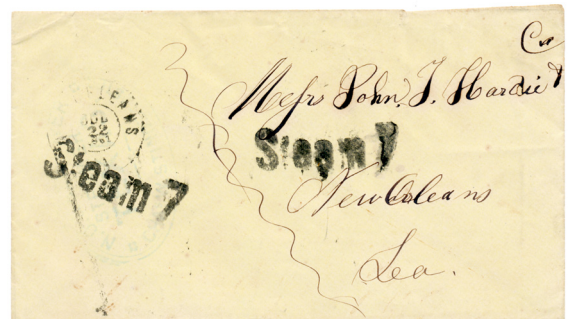 Co
Messrs John. T. Hardie &
Steam 7
New Orleans
Lea.
LEANS
22
Steam 7